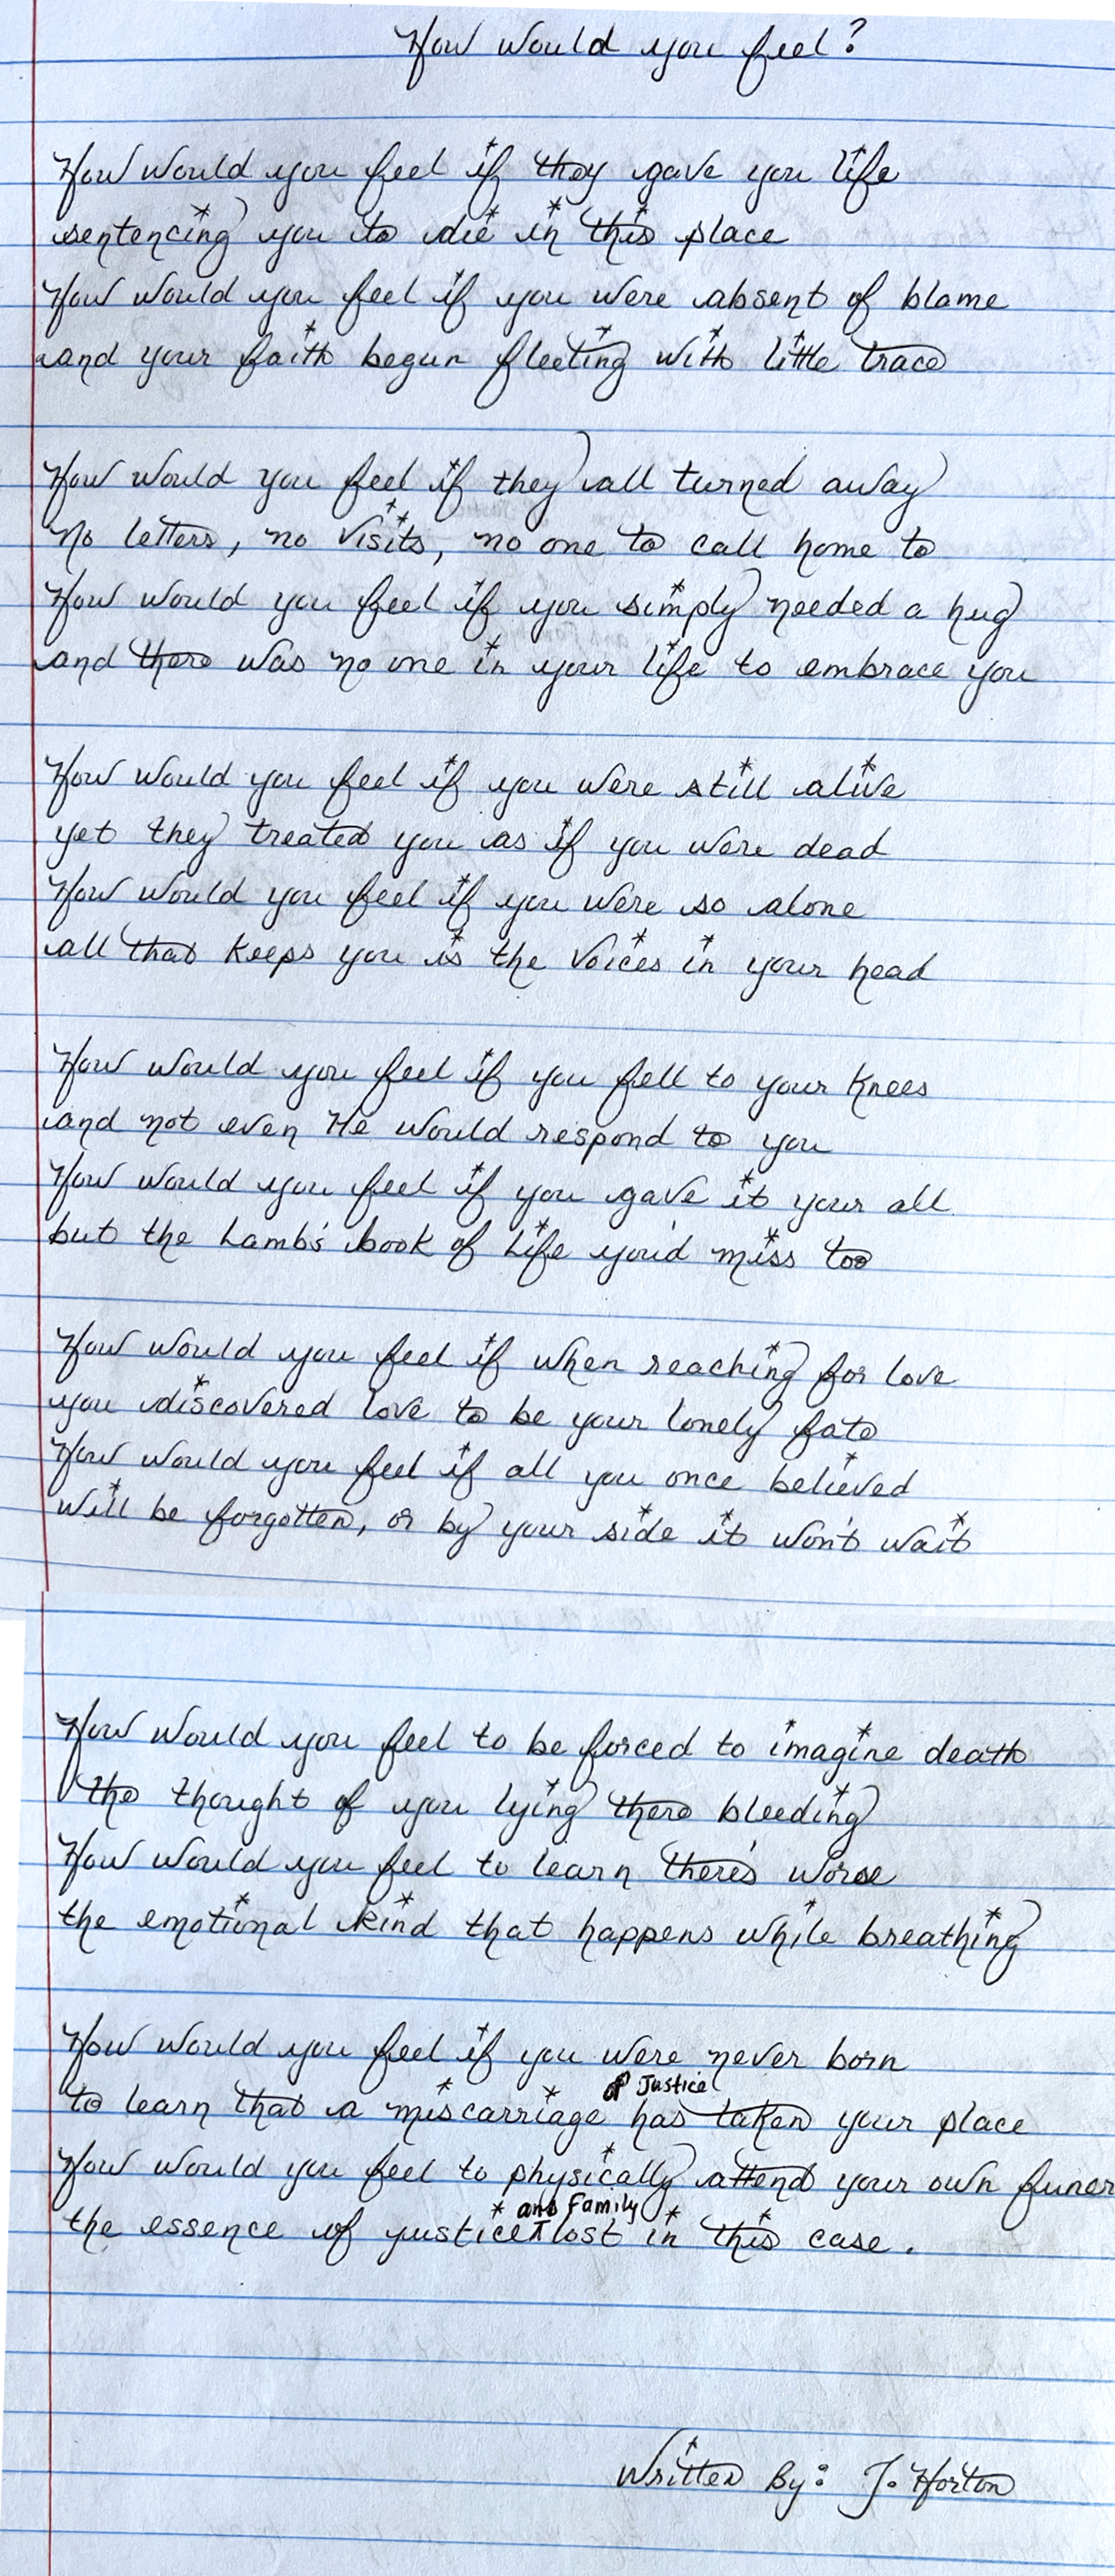 How would you feel?
How would you feel if they gave you life
sentencing you to die in this place
How would you feel if you were absent of blame
and your faith begun fleeting with little trace
How would you feel if they all turned away
no letters, no visits, no one to call home to
How would you feel if you simply needed a hug
and there was no one in your life to embrace you
How would you feel if you were still alive
yet they treated you as if you were dead
How would you feel if you were so alone
all that keeps you is the voices in your head
How would you feel if you fell to your knees
and not even He would respond to you
How would you feel if you gave it your all
but the Lamb's book of Life you'd miss too
How would you feel if when reaching for love
you discovered love to be your lonely fate
How would you feel if all you once believed
will be forgotten, or by your side it won't wait
How would you feel to be forced to imagine death
the thought of you lying there bleeding
How would you feel to learn there's worse
the emotional kind that happens while breathing
How would you feel if you were never born
to learn that a miscarriage of Justice has taken your place
How would you feel to physically attend your own funer
the essence of justice and Family lost in this case.
Written By: J. Horton